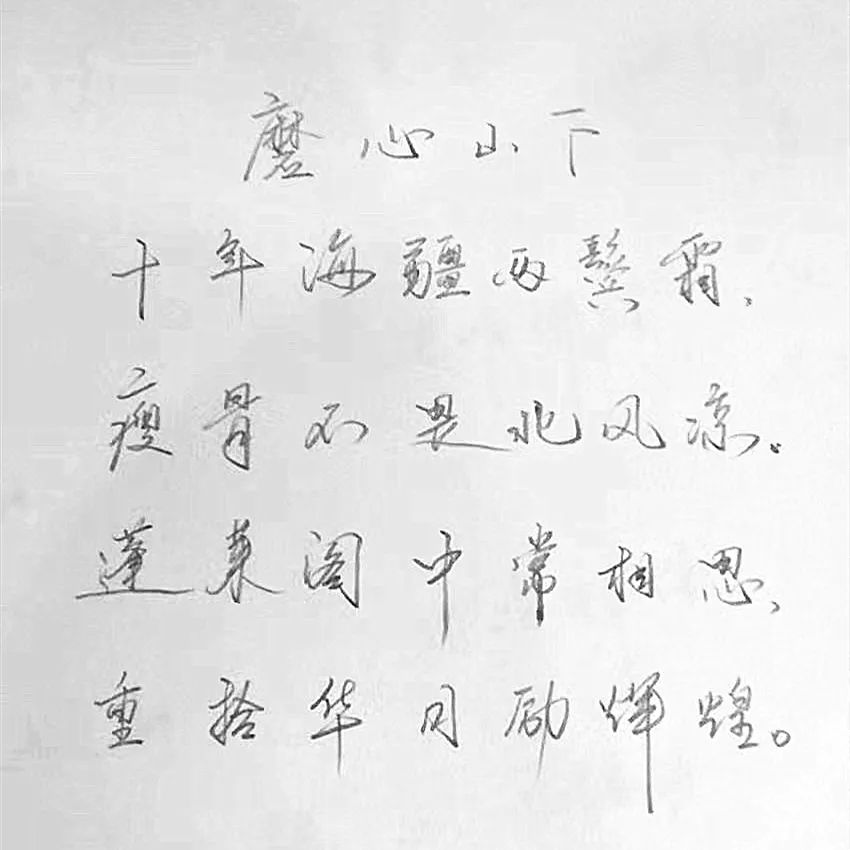 磨心山下
十年海疆两鬓霜，
瘦骨不畏北风凉。
蓬莱阁中常相思，
重拾华月励辉煌。